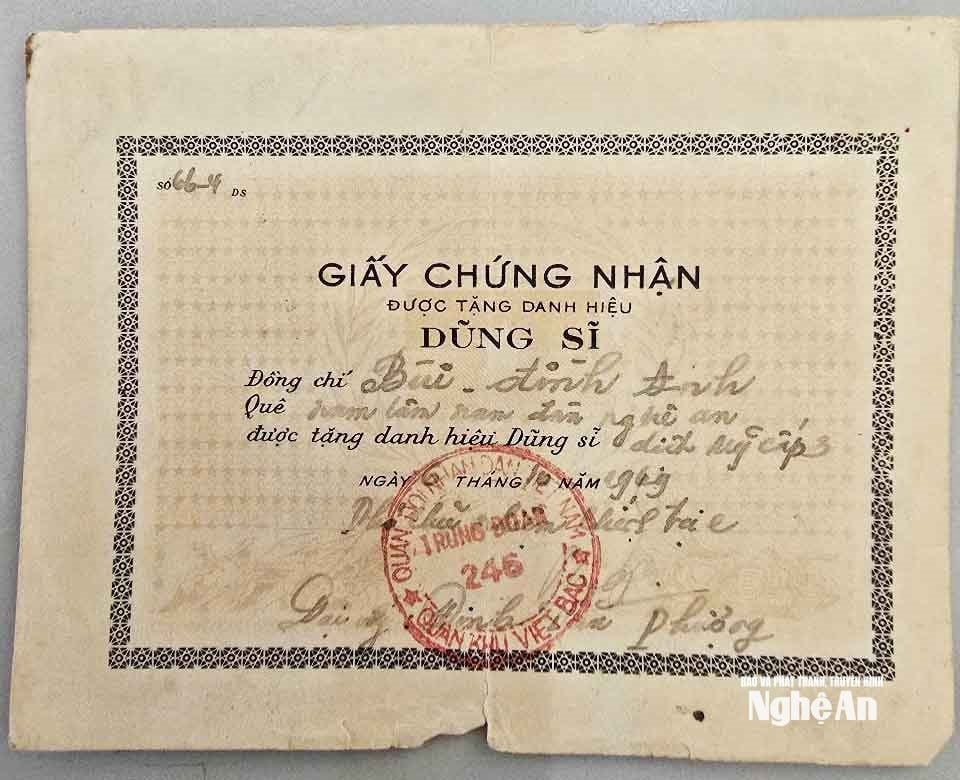 SỐ 66-4 DS
GIẤY CHỨNG NHẬN
ĐƯỢC TẶNG DANH HIỆU
DŨNG SĨ
Đồng chí Bùi - đình Anh
Quê nam tân nam đàn nghệ an
được tặng danh hiệu Dũng sĩ diệt Mỹ cấp 3
NGÀY THÁNG 10 NĂM 1969
QUÂN ĐỘI NHÂN DÂN VIỆT NAM
TRUNG ĐOÀN
246
QUÂN KHU VIỆT BẮC
Phượng
BÁO VÀ PHÁT THANH, TRUYỀN HÌNH
Nghệ An